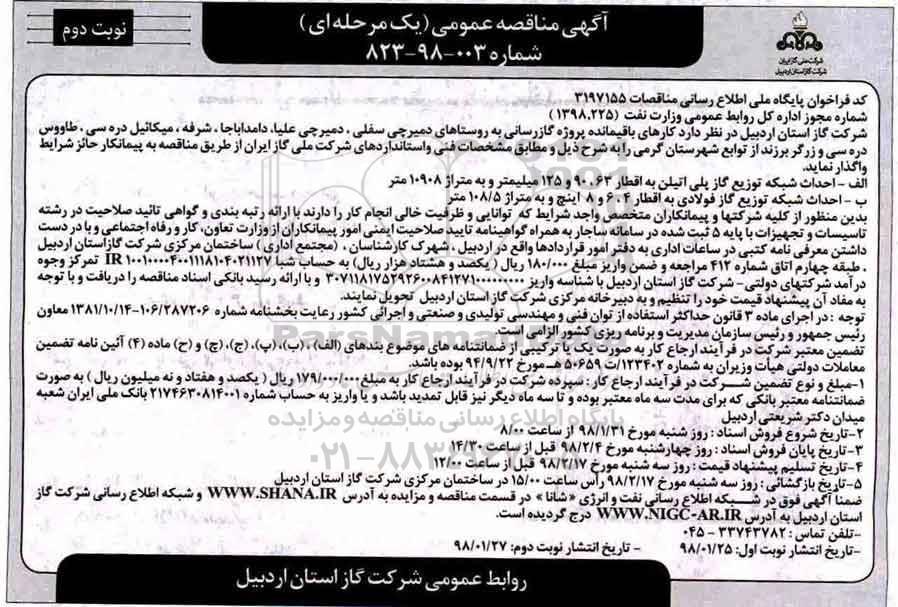 آگهی مناقصه عمومی (یک مرحله‌ای)
شماره ۰۰۳-۹۸-۸۲۳
نوبت دوم
شرکت ملی گاز ایران
شرکت گاز استان اردبیل
کد فراخوان پایگاه ملی اطلاع رسانی مناقصات ۳۱۹۷۱۵۵
شماره مجوز اداره کل روابط عمومی وزارت نفت (۱۳۹۸,۲۲۵)
شرکت گاز استان اردبیل در نظر دارد کارهای باقیمانده پروژه گازرسانی به روستاهای دمیرچی سفلی، دمیرچی علیا، داماداباجا، شرفه، میکائیل دره سی، طاووس
دره سی و زرگر برزند از توابع شهرستان گرمی را به شرح ذیل و مطابق مشخصات فنی واستانداردهای شرکت ملی گاز ایران از طریق مناقصه به پیمانکار حائز شرایط
واگذار نماید.
الف - احداث شبکه توزیع گاز پلی اتیلن به اقطار ۶۳، ۹۰ و ۱۲۵ میلیمتر و به متراژ ۱۰۹۰۸ متر
ب - احداث شبکه توزیع گاز فولادی به اقطار ۴، ۶ و ۸ اینچ و به متراژ ۱۰۸/۵ متر
بدین منظور از کلیه شرکتها و پیمانکاران متخصص واجد شرایط که توانایی و ظرفیت خالی انجام کار را دارند با ارائه رتبه بندی و گواهی تائید صلاحیت در رشته
تاسیسات و تجهیزات با پایه ۵ ثبت شده در سامانه ساجار به همراه گواهینامه تایید صلاحیت ایمنی امور پیمانکاران از وزارت تعاون، کار و رفاه اجتماعی و با در دست
داشتن معرفی نامه کتبی در ساعات اداری به دفتر امور قراردادها واقع در اردبیل، شهرک کارشناسان، (مجتمع اداری) ساختمان مرکزی شرکت گاز استان اردبیل
، طبقه چهارم اتاق شماره ۴۱۲ مراجعه و ضمن واریز مبلغ ۱۸۰/۰۰۰ ریال (یکصد و هشتاد هزار ریال) به حساب شبا IR ۱۰۰۱۰۰۰۰۴۰۰۱۱۱۸۱۰۴۰۲۱۱۲۷ تمرکز وجوه
درآمد شرکتهای دولتی- شرکت گاز استان اردبیل با شناسه واریز و با ارائه رسید بانکی اسناد مناقصه را دریافت و با توجه
به مفاد آن پیشنهاد قیمت خود را تنظیم و به دبیرخانه مرکزی شرکت گاز استان اردبیل تحویل نمایند.
توجه: در اجرای ماده ۳ قانون حداکثر استفاده از توان فنی و مهندسی تولیدی و صنعتی و اجرائی کشور رعایت بخشنامه شماره ۱۰۶/۲۸۷۲۰۶-۱۳۸۱/۱۰/۱۴ معاون
رئیس جمهور و رئیس سازمان مدیریت و برنامه ریزی کشور الزامی است.
تضمین معتبر شرکت در فرآیند ارجاع کار به صورت یک یا ترکیبی از ضمانتنامه های موضوع بندهای (الف)، (ب)، (پ)، (ج)، (چ) و (ح) ماده (۴) آئین نامه تضمین
معاملات دولتی هیأت وزیران به شماره ۱۲۳۴۰۲/ت ۵۰۶۵۹ هـ مورخ ۹۴/۹/۲۲ بوده باشد.
۱-مبلغ و نوع تضمین شرکت در فرآیند ارجاع کار: سپرده شرکت در فرآیند ارجاع کار به مبلغ ۱۷۹/۰۰۰/۰۰۰ ریال (یکصد و هفتاد و نه میلیون ریال) به صورت
ضمانتنامه معتبر بانکی که برای مدت سه ماه معتبر بوده و تا سه ماه دیگر نیز قابل تمدید باشد و یا واریز به حساب شماره ۲۱۷۴۶۳۰۸۱۴۰۰۱ بانک ملی ایران شعبه
میدان دکتر شریعتی اردبیل
۲-تاریخ شروع فروش اسناد: روز شنبه مورخ ۹۸/۱/۳۱ از ساعت ۸/۰۰
۳-تاریخ پایان فروش اسناد: روز چهارشنبه مورخ ۹۸/۲/۴ قبل از ساعت ۱۴/۳۰
۴-تاریخ تسلیم پیشنهاد قیمت: روز سه شنبه مورخ ۹۸/۲/۱۷ قبل از ساعت ۱۲/۰۰
۵-تاریخ بازگشائی: روز سه شنبه مورخ ۹۸/۲/۱۷ رأس ساعت ۱۵/۰۰ در ساختمان مرکزی شرکت گاز استان اردبیل
ضمنا آگهی فوق در شبکه اطلاع رسانی نفت و انرژی «شانا» در قسمت مناقصه و مزایده به آدرس WWW.SHANA.IR و شبکه اطلاع رسانی شرکت گاز
استان اردبیل به آدرس WWW.NIGC-AR.IR درج گردیده است.
-تلفن تماس: ۳۳۷۴۳۷۸۲ - ۰۴۵
-تاریخ انتشار نوبت اول: ۹۸/۰۱/۲۵ - تاریخ انتشار نوبت دوم: ۹۸/۰۱/۲۷
روابط عمومی شرکت گاز استان اردبیل